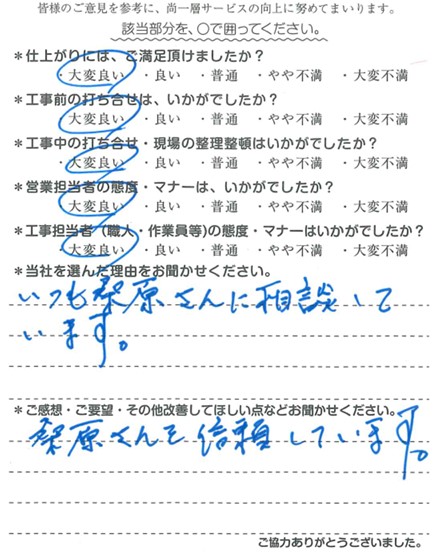 皆様のご意見を参考に、尚一層サービスの向上に努めてまいります。
該当部分を、○で囲ってください。
＊仕上がりには、ご満足頂けましたか？
・大変良い ・良い ・普通 ・やや不満 ・大変不満
＊工事前の打ち合せは、いかがでしたか？
・大変良い ・良い ・普通 ・やや不満 ・大変不満
＊工事中の打ち合せ・現場の整理整頓はいかがでしたか？
・大変良い ・良い ・普通 ・やや不満 ・大変不満
＊営業担当者の態度・マナーは、いかがでしたか？
・大変良い ・良い ・普通 ・やや不満 ・大変不満
＊工事担当者（職人・作業員等)の態度・マナーはいかがでしたか？
・大変良い ・良い ・普通 ・やや不満 ・大変不満
＊当社を選んだ理由をお聞かせください。
いつも桑原さんに相談して
います。
＊ご感想・ご要望・その他改善してほしい点などお聞かせください。
桑原さんを信頼しています。
ご協力ありがとうございました。